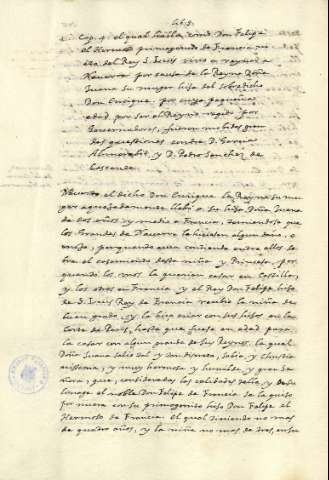 lib. 3.
Cap. 4. el qual habla, como Don Felipe
el Hermoso primogenito de Francia nie
to del Rey S. Luis vino a reynar a
Navarra por causa de la Reyna Doña
Juana su muger hija del sobredicho
Don Enrique. por cuya pequeña
edad, por ser el Reyno regido por
Governadores, fueron movidas gran
des questiones contra D. Garcia
Almoravit, y D. Pedro Sanchez de
Cascante.
Muerto el dicho Don Enrique la Reyna su mu
ger apresuradamente llebó a su hija Doña Juana
de dos años y medio a Francia, temiendose que
los Grandes de Navarra la hiciesen algun daño, o
enojo, porquanto avia contienda entre ellos so
bre el casamiento desta niña y Princesa, por
quanto los unos la querian casar en Castilla,
y los otros en Francia, y el Rey Don Felipe hijo
de S. Luis Rey de Francia recibió la niña de
buen grado, y la hizo criar con sus hijos en la
Corte de Paris, hasta que fuese en edad para
la casar con algun grande de sus Reynos, la qual
Doña Juana salio tal y tan discreta, sabia, y christia
nissima, y muy hermosa y humilde y gran se
ñora, que, consideradas las calidades della, y de su
linage el noble Don Felipe de Francia la quiso
por nuera con su primogenito hijo Don Felipe el
Hermoso de Francia. el qual teniendo no mas
de quatro años, y la niña no mas de tres, en su